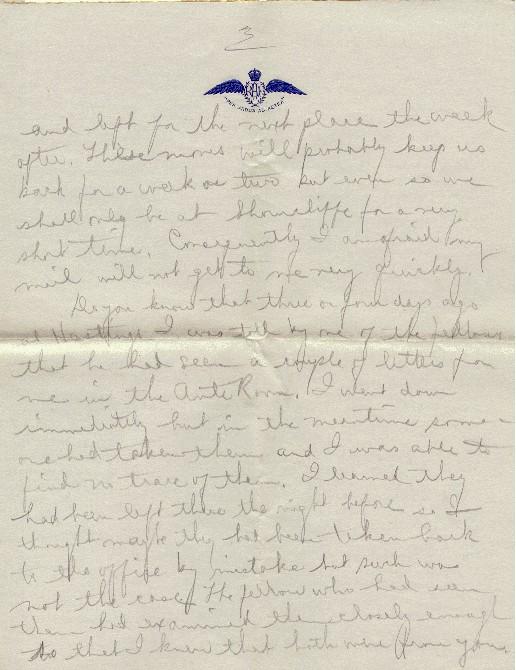 3
RAF
PER ARDUA AD ASTRA
and left for the next place the week
after. These moves will probably keep us
back for a week or two but even so we
shall only be at Shorncliffe for a very
short time. Consequently I am afraid my
mail will not get to me very quickly.
Do you know that three or four days ago
at Hastings I was told by one of the fellows
that he had seen a couple of letters for
me in the Ante Room. I went down
immediately but in the meantime some-
one had taken them and I was able to
find no trace of them. I learned they
had been left there the night before so I
thought maybe they had been taken back
to the office by mistake but such was
not the case. The fellow who had seen
them had examined them closely enough
so that I knew that both were from you.